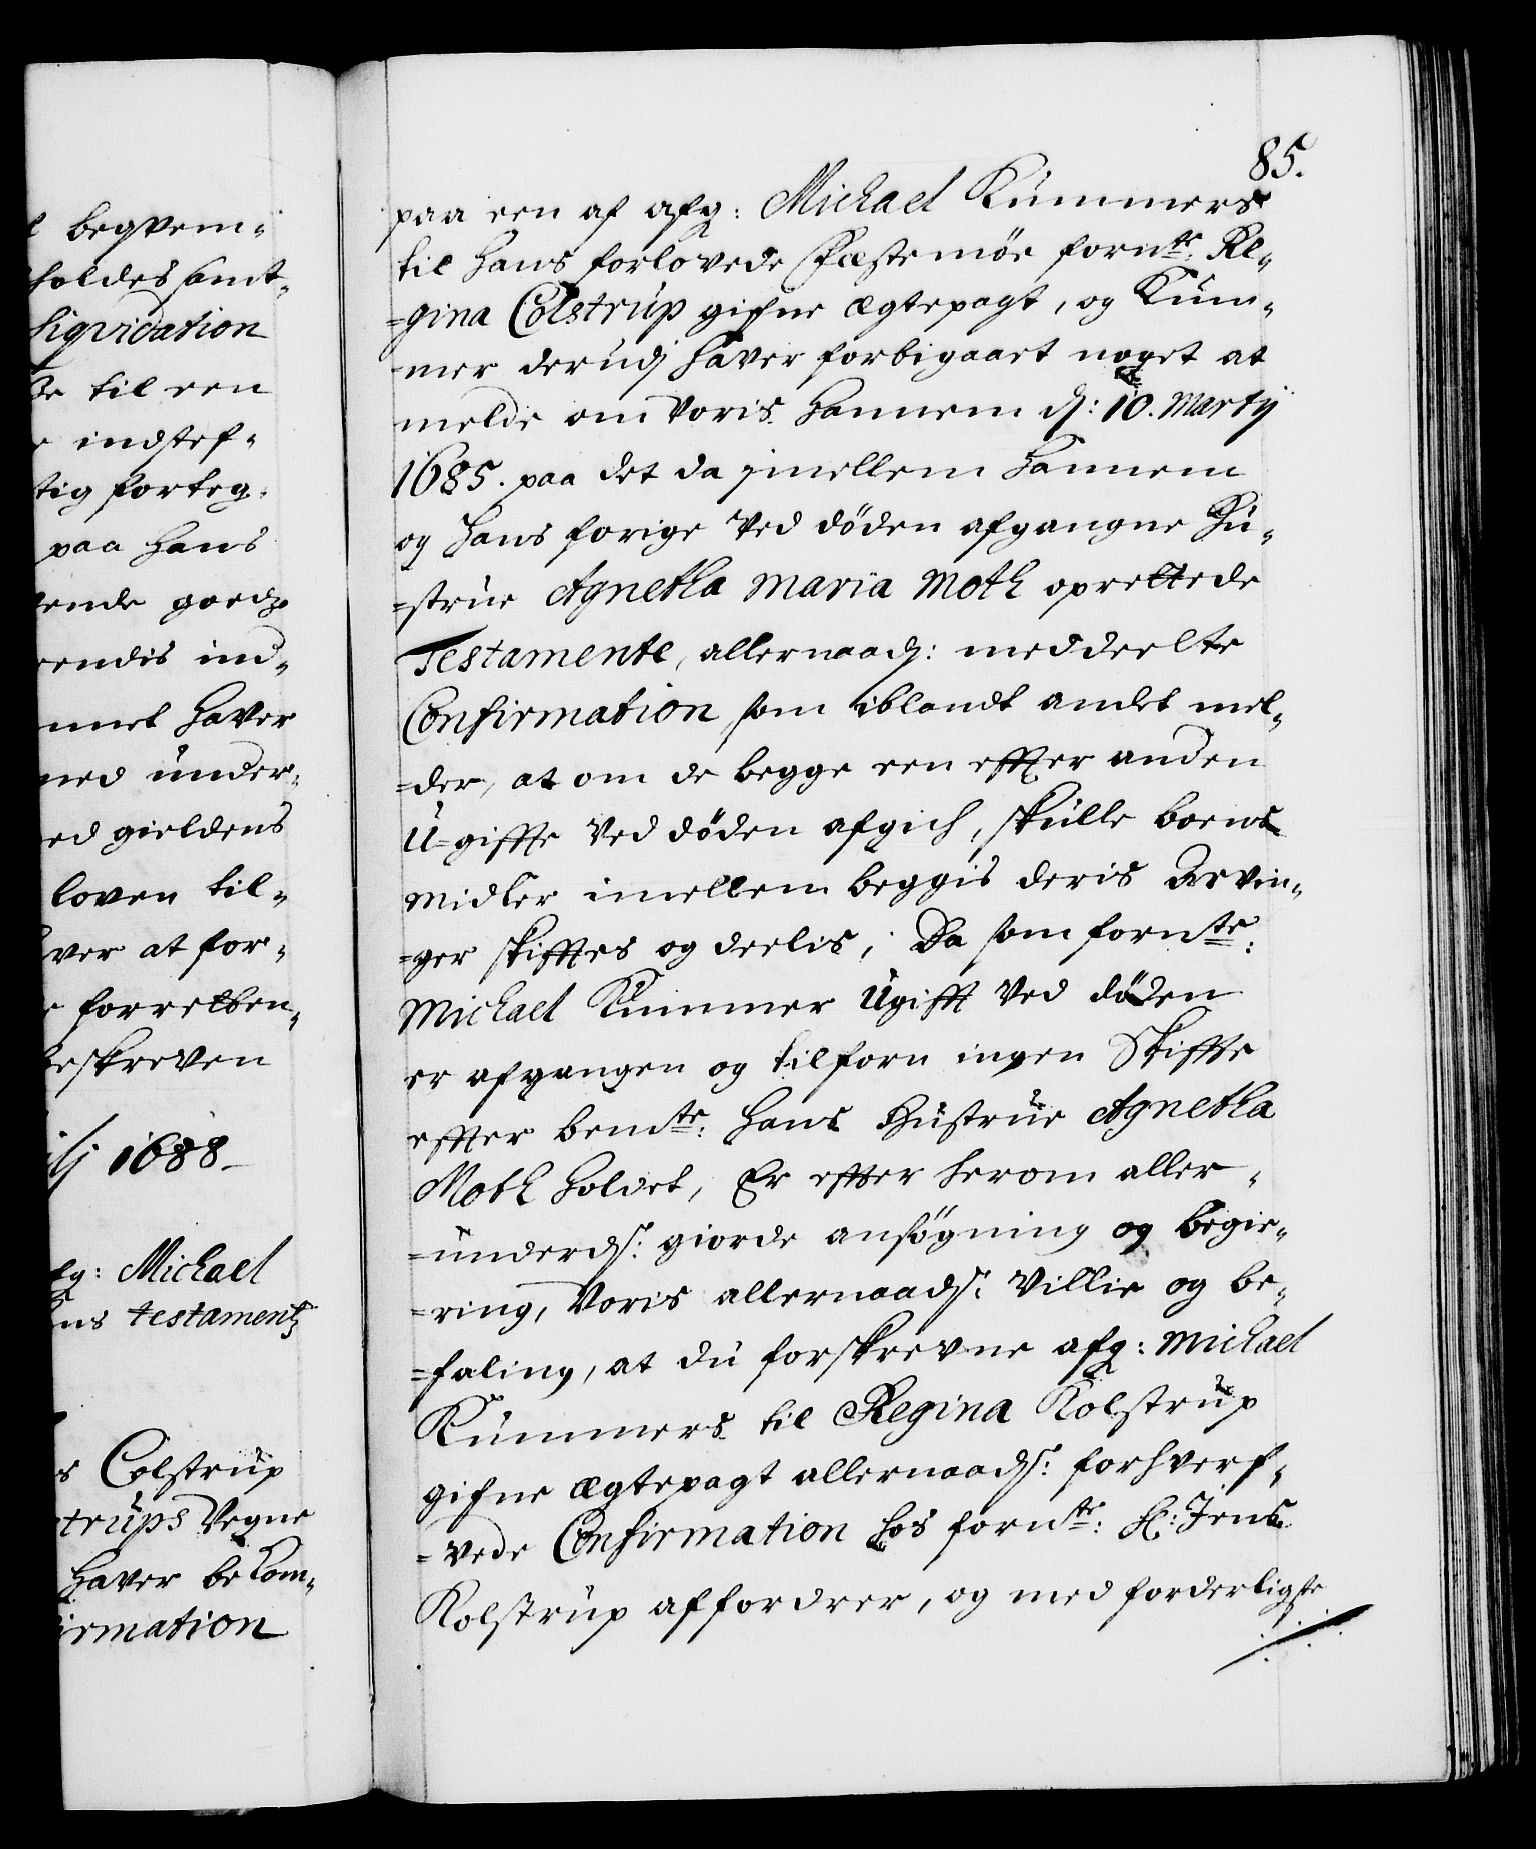 l beqvem-
holdes samt-
liqvidation
de til een
e indstef-
tig forteg-
paa hans
ende goedz
endis ind-
met haver
ned under-
ed gieldens
loven til-
ver at for-
forretten-
beskreven
ilj 1688
fg: Michael
ns testamentz
s Colstrup
trups Vegne
haver bekom-
irmation
85.
paa een af afg: Michael Kummers
til hans forlovede Fæstemøe fornte: Re-
=gina Colstrup gifne ægtepagt, og Kum-
=mer derudj haver forbigaaet noget at
melde om Voris hannem d: 10. Martij
1685. paa det da imellem hannem
og hans forige Ved døden afgangne Hu-
=strue Agnetha Maria Moth oprettede
Testamente, allernaad: meddeelte
Confirmation som iblandt andet mel-
=der, at om de begge een effter anden
U=giffte Ved døden afgich, skulle boens
midler imellem beggis deris Arvin-
=ger skifftes og deelis; Da som fornte:
Michael Kummer Ugifft Ved døden
er afgangen og tilforn ingen Skiffte
effter bemte: hans Hustrue Agnetha
Moth holdet, Er effter herom aller-
=underds: giorde ansøgning og begie-
=ring, Voris allernaads: Villie og be-
=faling, at du forskrevne afg: Michael
Kummers til Regina Kolstrup
gifne ægtepagt allernaads: forhverf-
=vede Confirmation hos fornte: H: Jens
Kolstrup affordrer, og med forderligste